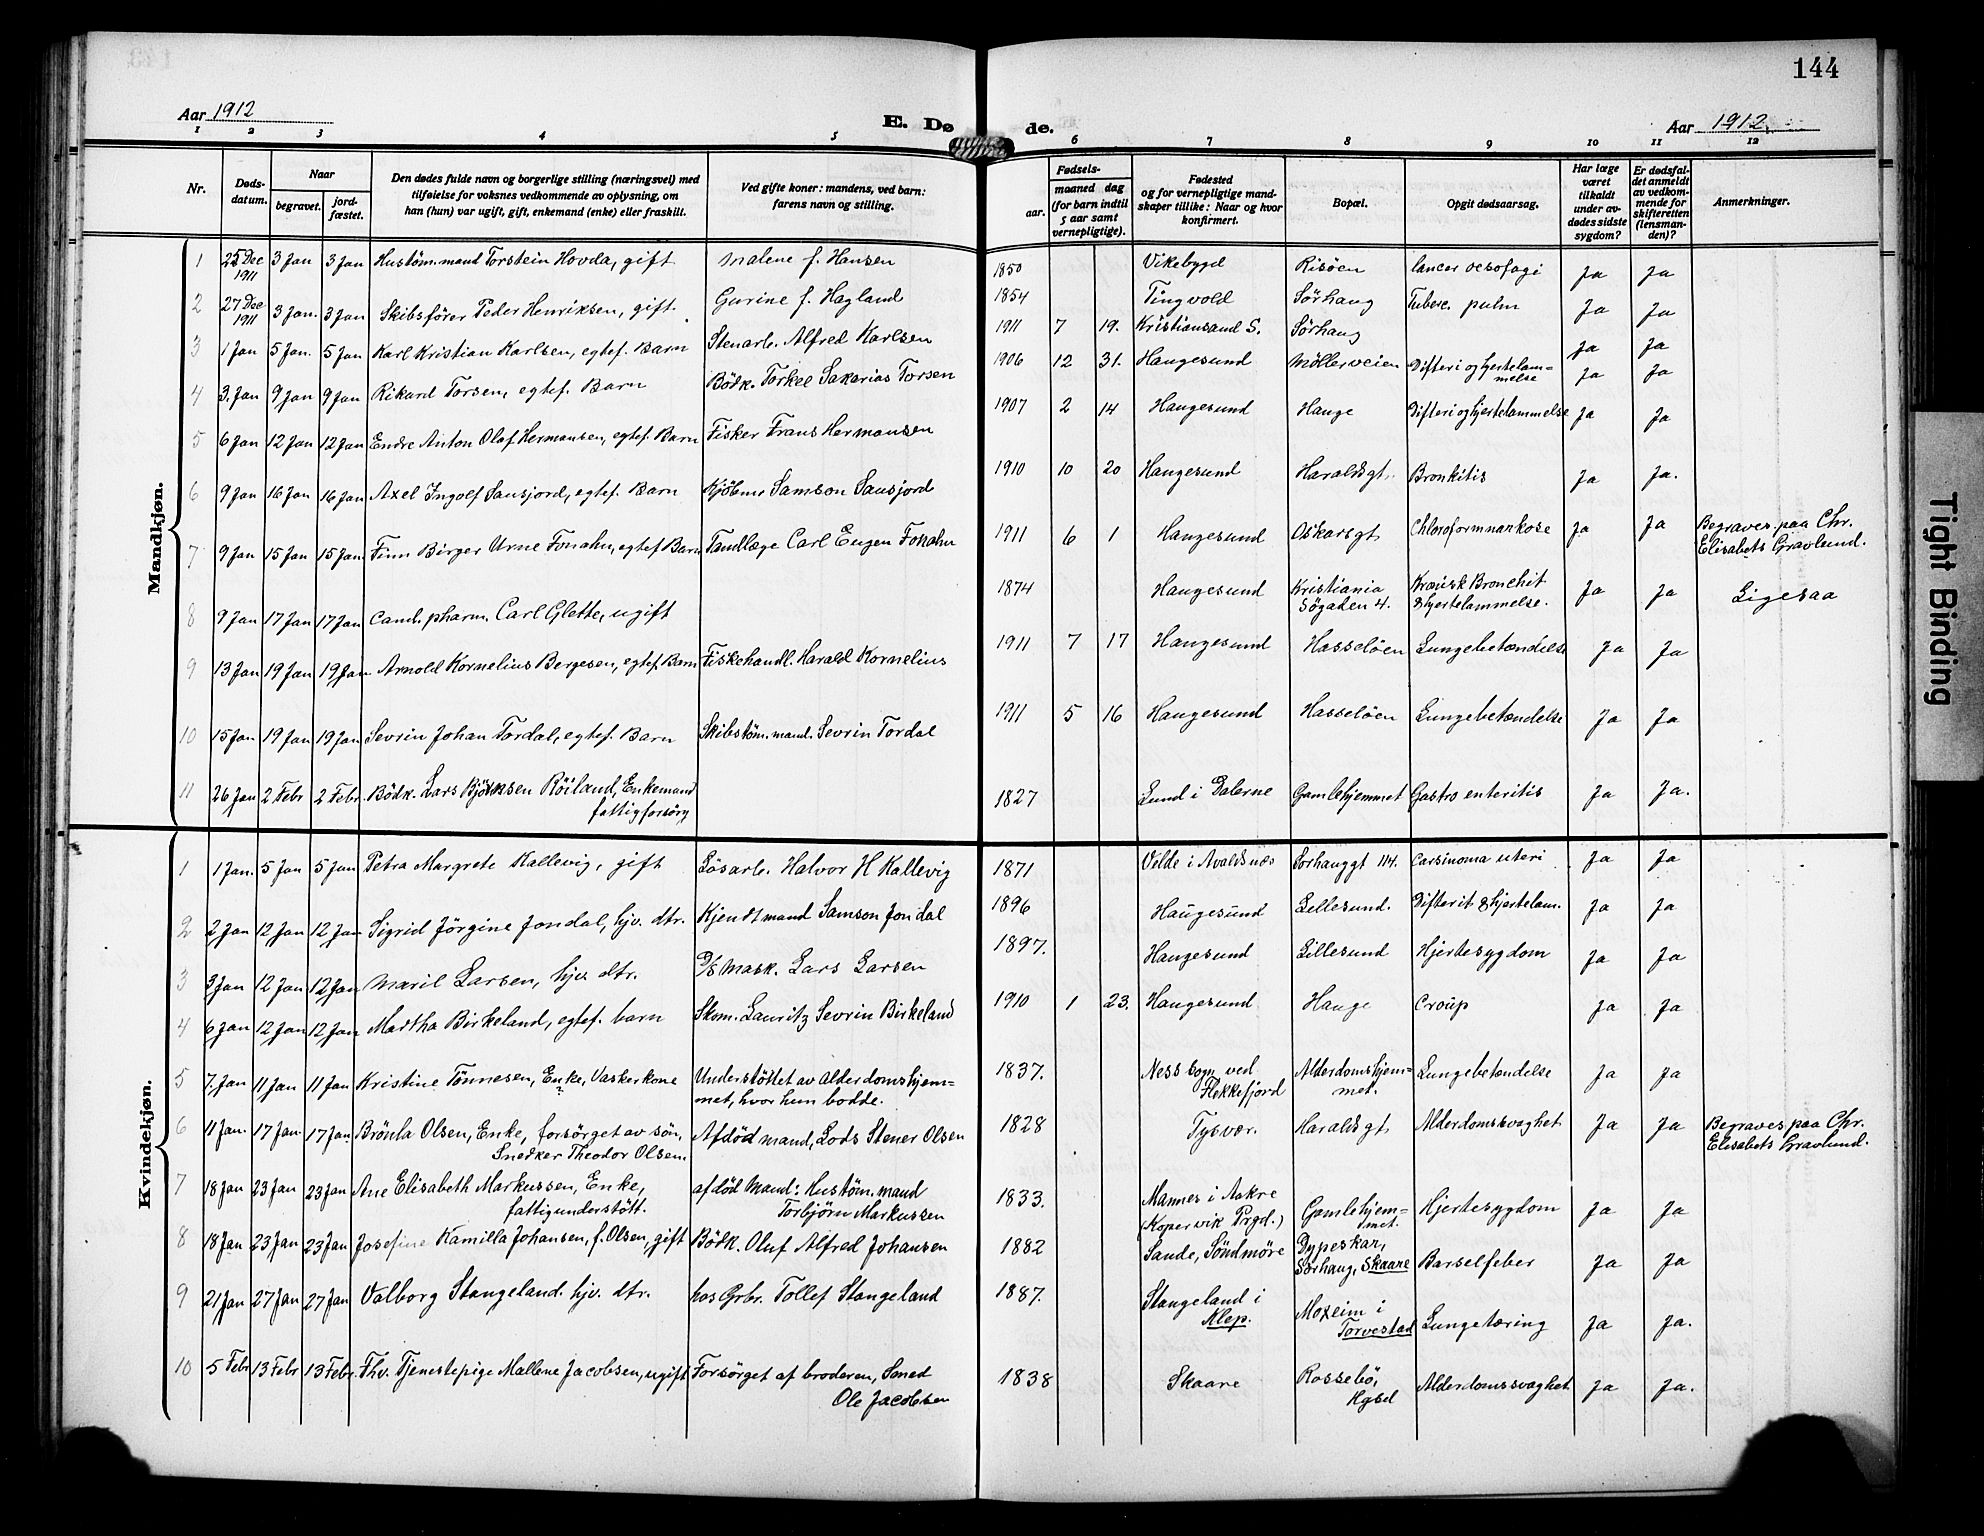 144
Aar 1912
E. Døde.
Aar 1912
1 2 3 4 5 6 7 8 9 10 11 12
Nr.
Døds-
datum.
Naar
begravet.
jord-
fæstet.
Den dødes fulde navn og borgerlige stilling (næringsvei) med
tilføielse for voksnes vedkommende av oplysning, om
han (hun) var ugift, gift, enkemand (enke) eller fraskilt.
Ved gifte koner: mandens, ved barn:
farens navn og stilling.
Fødsels-
aar.
maaned dag
(for barn indtil
5 aar samt
vernepligtige).
Fødested
og for vernepligtige mand-
skaper tillike: Naar og hvor
konfirmert.
Bopæl.
Opgit dødsaarsag.
Har læge
været
tilkaldt
under av-
dødes sidste
sygdom?
Er dødsfal-
det anmeldt
av vedkom-
mende for
skifteretten
(lensman-
den)?
Anmerkninger.
Mandkjøn.
1 25 Dec 1911 3 Jan 3 Jan Hustøm.mand Torstein Hovda, gift Malene f. Hansen 1850 Vikebygd Risöen cancer oesofagi Ja Ja
2 27 Dec 1911 3 Jan. 3 Jan Skibsfører Peder Henriksen, gift. Gurine f. Hagland 1854 Tingvold Sörhaug Tuberc. pulm Ja Ja
3 1 Jan 5 Jan. 5 Jan Karl Kristian Karlsen, egtef. Barn Stenarb. Alfred Karlsen 1911 7 19. Kristiansand S. Sörhaug Ja Ja
4 3. Jan 9 Jan 9 Jan Rikard Torsen, egtef. Barn Bödk. Torkel Sakarias Torsen 1906 12 31. Haugesund Möllerveien Difteri og hjertelam=
melse Ja Ja
5 6 Jan 12 Jan 12 Jan Endre Anton Olaf Hermansen, egtef. Barn Fisker Frans Hermansen 1907 2 14 Haugesund Hauge Difteri og hjertelammelse Ja Ja
6 9 Jan 16 Jan 16 Jan Axel Ingolf Sausjord, egtef. Barn Kjöbm Samson Sausjord 1910 10 20 Haugesund Haraldsgt. Bronkitis Ja Ja.
7 9 Jan 15 Jan 15 Jan Finn Birger Urne Fonahn, egtef Barn Tandlæge Carl Eugen Fonahn 1911 6 1 Haugesund Oskarsgt Chloroformnarkose Ja Ja Begraves paa Chr.
Elisabets Gravlund.
8 9 Jan 17 Jan 17 Jan Cand. pharm. Carl Glette, ugift 1874 Haugesund Kristiania
Søgaden 4. Kronisk Bronchit
& hjertelammelse. Ja Ja Ligesaa
9 13 Jan 19 Jan 19 Jan Arnold Kornelius Bergesen, egtef. Barn Fiskehandl. Harald Kornelius 1911 7 17 Haugesund Hasseløen Lungebetændelse Ja Ja
10 15 Jan 19 Jan 19 Jan Sevrin Johan Tordal, egtef. Barn Skibstöm.mand. Sevrin Tordal 1911 5 16 Haugesund Hasseløen Lungebetændelse Ja Ja
11 26 Jan 2 Febr 2 Febr. Bödk. Lars Bjökksen Röiland, Enkemand
fattigforsörg 1827 Lund i Dalerne Gamlehjemmet Gastro enteritis Ja Ja.
Kvindekjøn.
1 1 Jan. 5 Jan 5 Jan Petra Margrete Kallevig, gift Lösarb. Halvor H Kallevig 1871 Velde i Avaldsnæs Sorhauggt 114. Carsinoma uteri Ja Ja
2 2 Jan 12 Jan 12 Jan Sigrid Jörgine Jondal, hjv. dtr. Kjendtmand Samson Jondal 1896 Haugesund Lillesund. Difterit & hjertelam. Ja Ja
3 3 Jan 12 Jan 12 Jan Maril Larsen, hjv. dtr. D/S Mask. Lars Larsen 1897. Haugesund Lillesund Hjertesygdom Ja Ja
4 6 Jan 12 Jan 12 Jan Martha Birkeland, egtef. barn Skom. Lauritz Sevrin Birkeland 1910 1 23. Haugesund Hauge Croup Ja Ja
5 7. Jan 11 Jan 11 Jan Kristine Tönnesen, Enke, Vaskerkone Understöttet av Alderdomshjem=
met, hvor hun bodde. 1837. Ness sogn ved
Flekkefjord Alderdomshjem=
met. Lungebetændelse Ja Ja
6 11 Jan. 17 Jan. 17 Jan Brönla Olsen, Enke, forsörget av sön,
Snedker Theodor Olsen. Afdöd mand, Lods Stener Olsen 1828 Tysvær. Haraldsgt Alderdomssvaghet Ja Ja Begraves paa Chr.
Elisabets Gravlund.
7 18 Jan 23 Jan 23 Jan Ane Elisabeth Markussen, Enke,
fattigunderstött. afdöd Mand: Hustøm.mand
Torbjörn Markussen 1833. Mannes i Aakre
(Kopervik Prgd.) Gamlehjem=
met. Hjertesygdom Ja Ja
8 18 Jan 23 Jan 23 Jan Josefine Kamilla Johansen, f. Olsen, gift Bödk. Oluf Alfred Johansen 1882 Sande, Söndmöre Dypeskar,
Sørhaug, Skaare Barselfeber Ja Ja
9 21 Jan 27 Jan 27 Jan Valborg Stangeland. hjv. dtr. hos Grbr. Tollef Stangeland 1887. Stangeland i
Klep. Moxeim i
Torvestad Lungetæring Ja Ja.
10 5 Febr 13 Febr 13 Febr. Fhv. Tjenestepige Mallene Jacobsen, ugift Forsörget af broderen, Smed
Ole Jacobsen 1838 Skaare Rossebö, Alderdomssvaghet Ja Ja.
Tight Binding